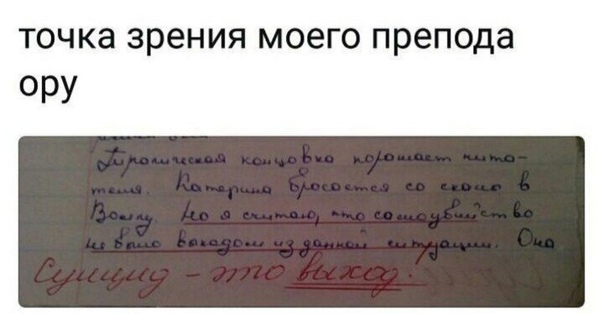 точка зрения моего препода
ору
Трагическая концовка поражает чита-
теля. Катерина бросается со скалы в
Волгу. Но я считаю, что самоубийство
не было выходом из данной ситуации. Она
Суицид - это выход.